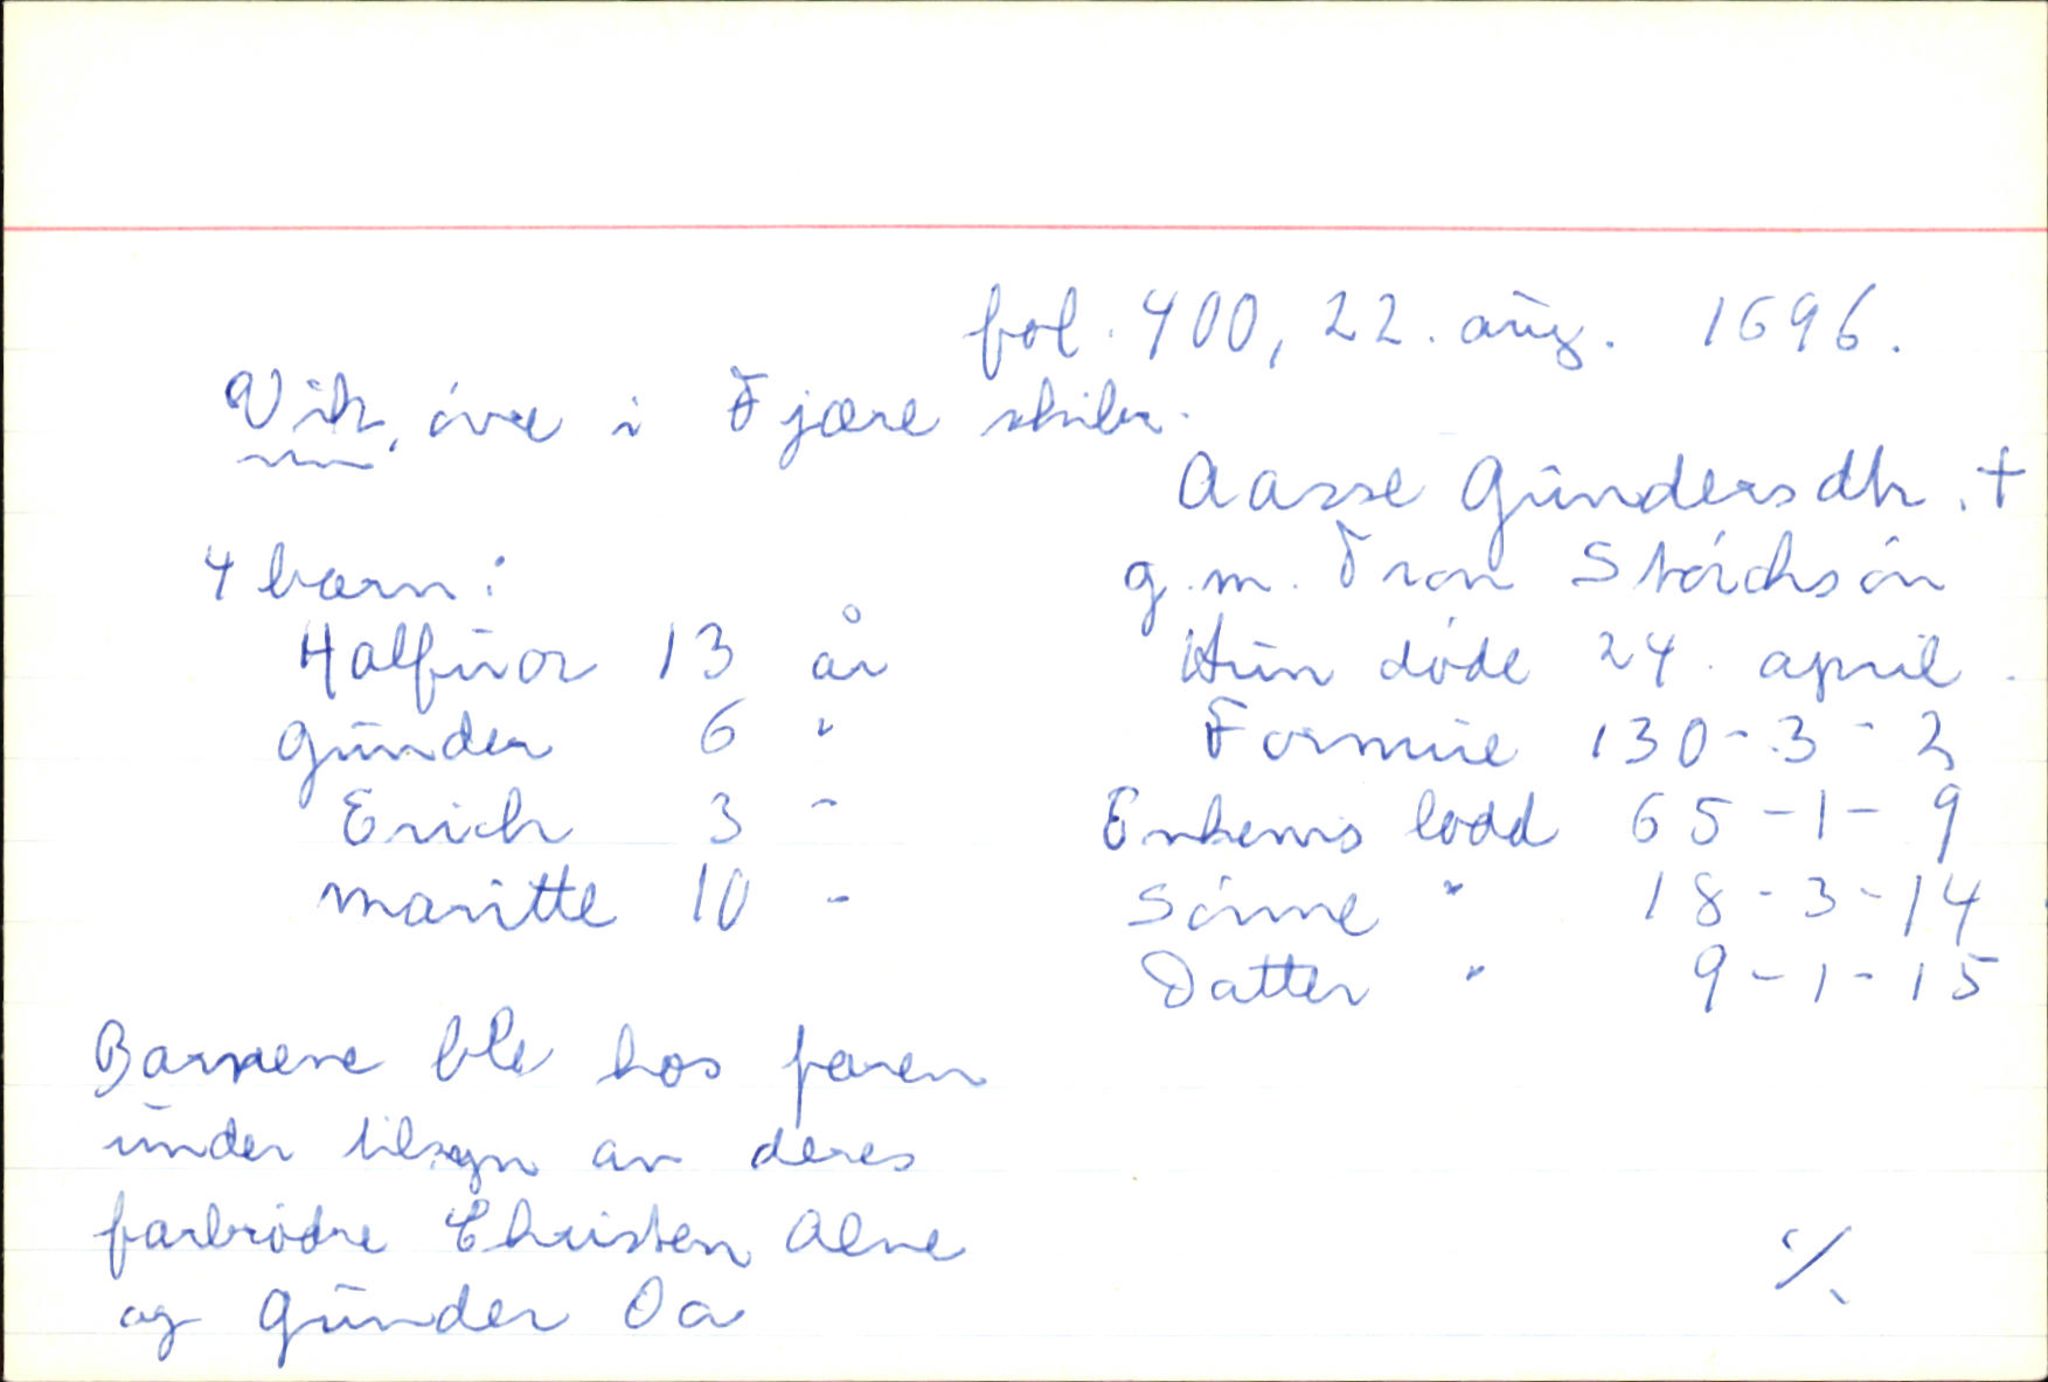 fol. 400, 22. aug. 1696.
Vik, övre i Fjære skibr.
Aasse Gundersdtr. +
g.m. Tron Störchsön
Hun döde 24. april.
Formue 130-3-3
Enkems lodd 65-1-9
Sönne " 18-3-14
Datter " 9-1-15
4 barn:
Halfuor 13 år
Gunder 6 "
Erich 3 -
Maritte 10 -
Barnene ble hos faren
under tilsyn av deres
farbrödre Christen Alne
og Gunder Oa
./.